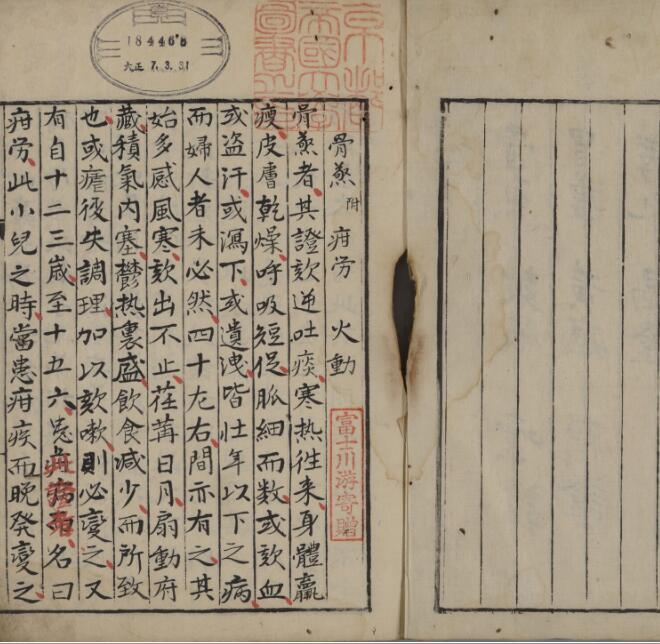 骨蒸 附 疳労 火動
骨蒸者其證欬逆吐痰寒热往来身體羸
瘦皮膚乾燥呼吸短促脈細而数或欬血
或盗汗或瀉下或遺洩皆壮年以下之病
而婦人者未必然四十左右間亦有之其
始多感風寒欬出不止荏苒日月扇動府
藏積氣内塞欝热裏盛飲食减少而所致
也或瘧後失調理加以欬嗽則必變之又
有自十二三歳至十五六患病而名曰
疳労此小児之時當患疳疾而晚発變之
富士川游寄贈
京都帝國大學圖書之印
大正 7.3.31